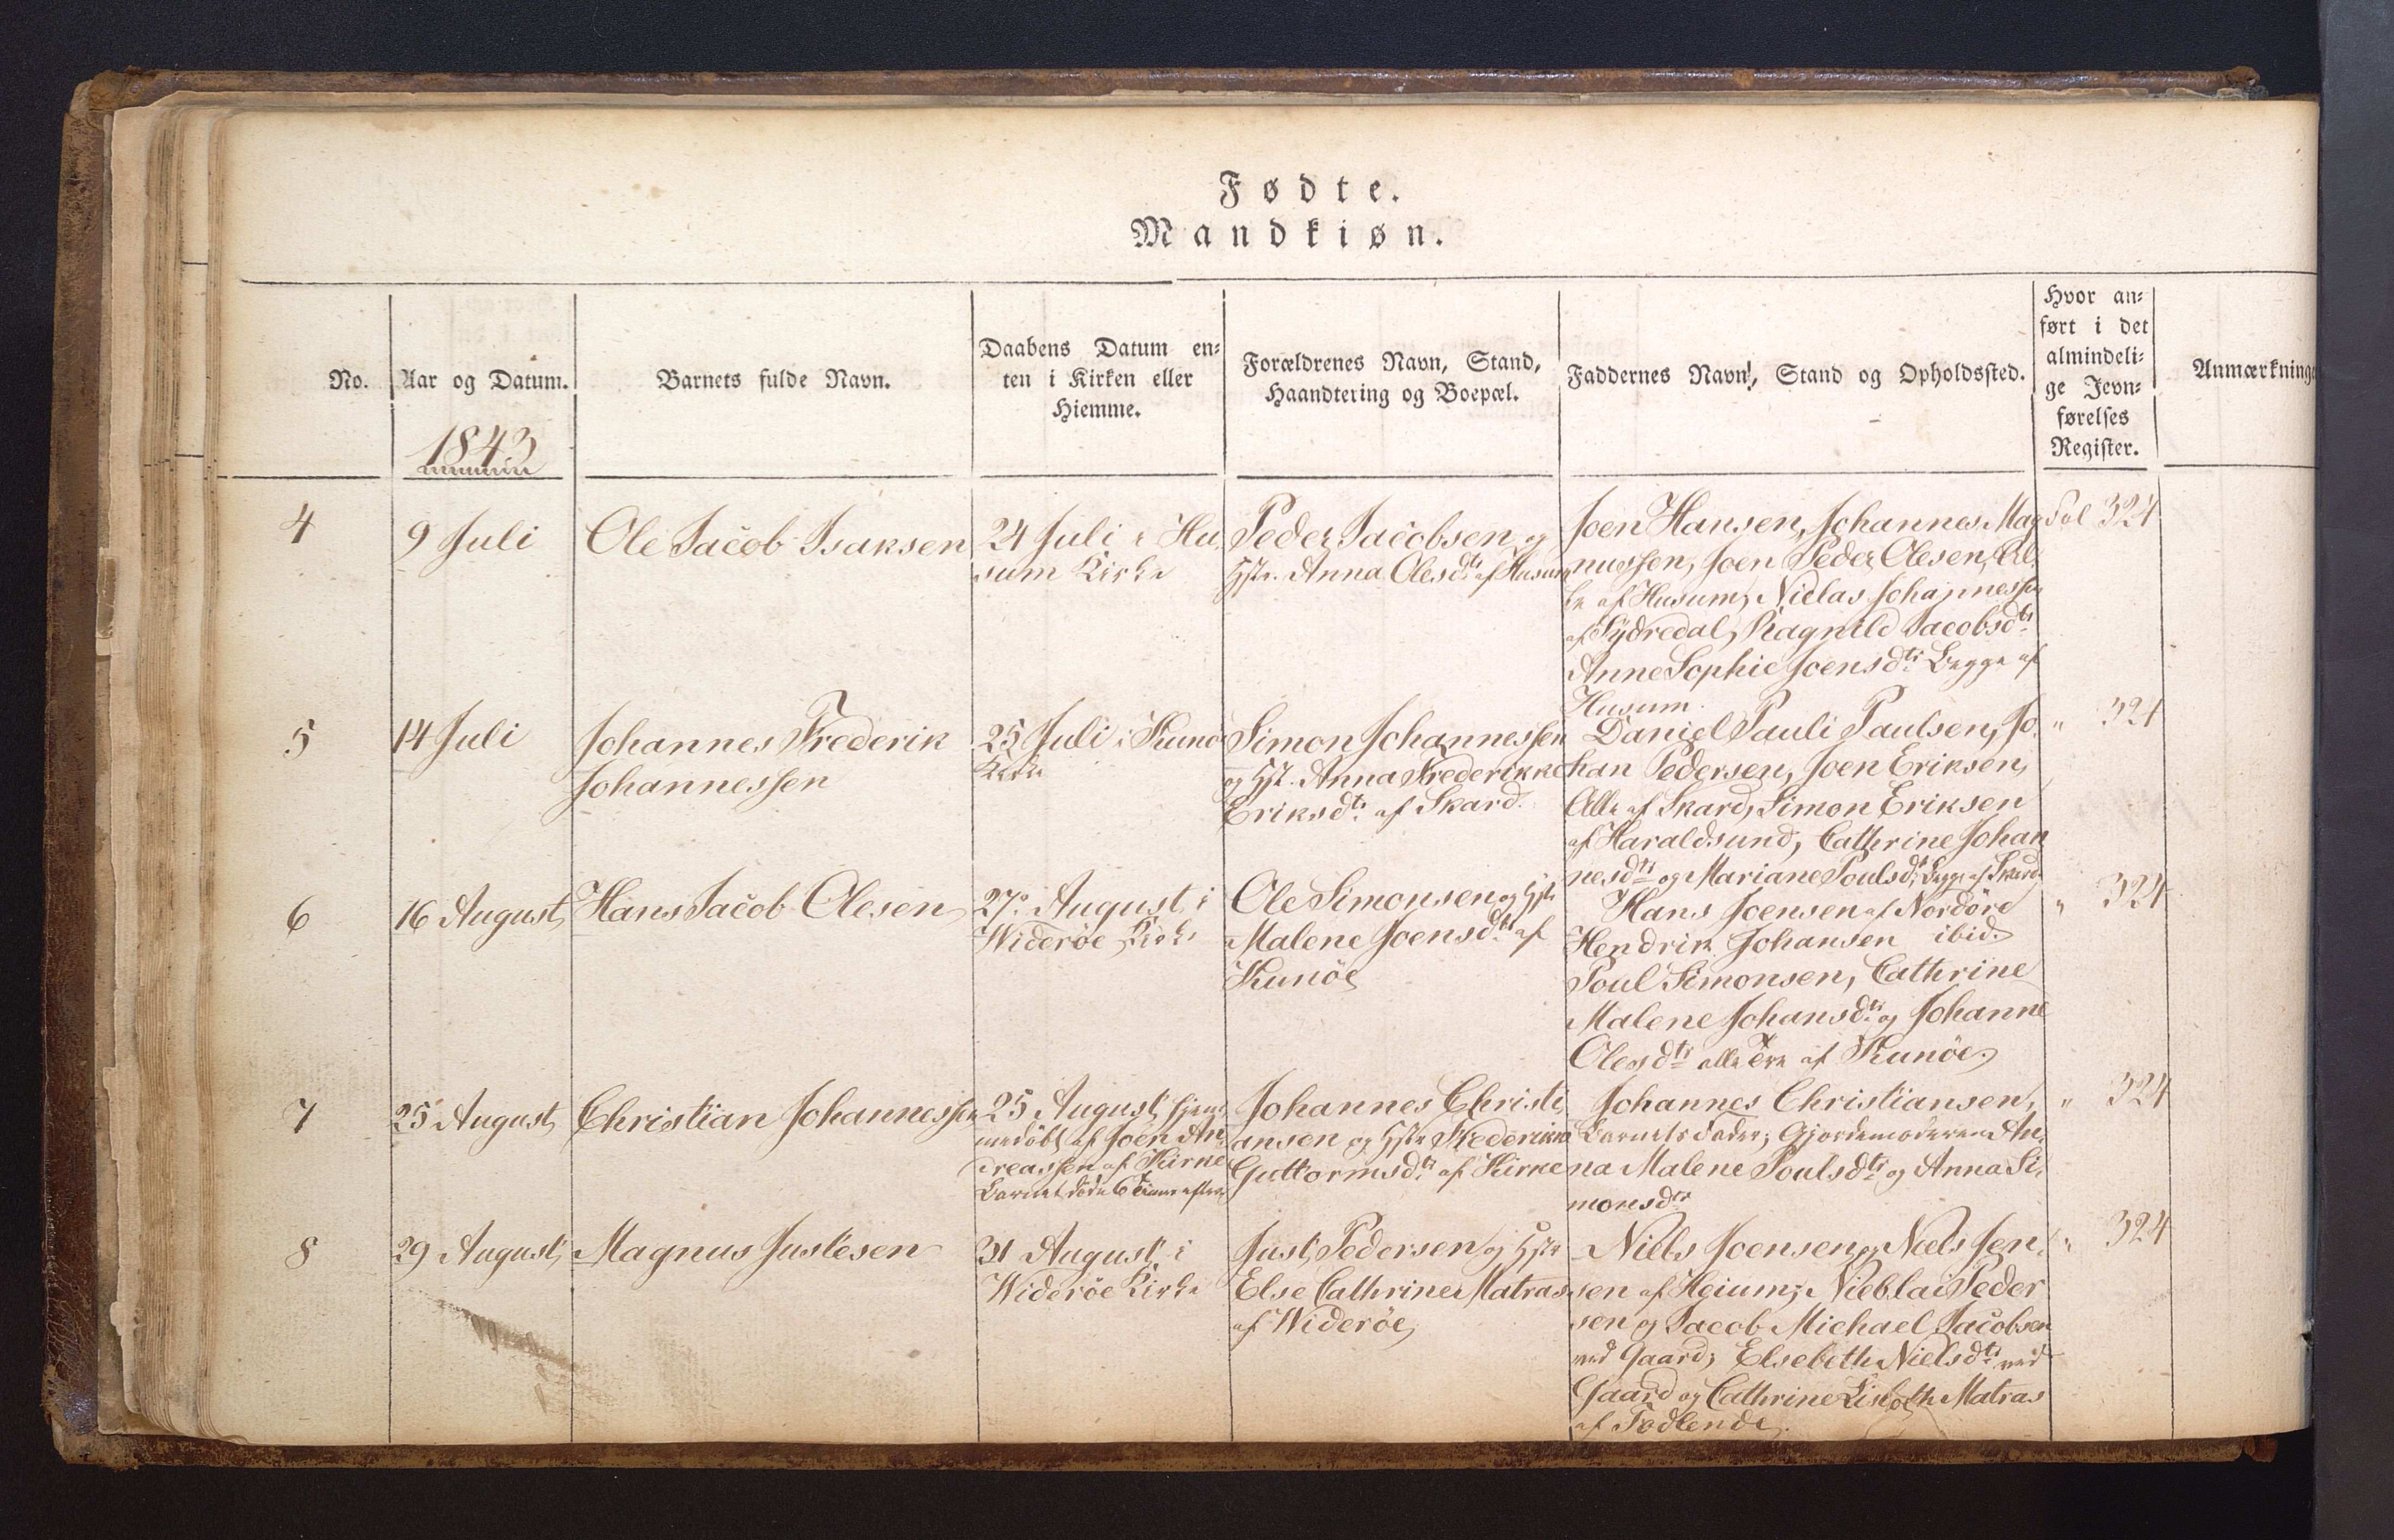 Fødte.
Mandkiøn.
No.
Aar og Datum.
1843
Barnets fulde Navn.
Daabens Datum en-
ten i Kirken eller
Hiemme.
Forældrenes Navn, Stand,
Haandtering og Boepæl.
Faddernes Navn, Stand og Opholdssted.
Hvor an-
ført i det
almindeli-
ge Jevn-
førelses
Register.
Anmærkning
4
9 Juli
Ole Jacob Isaksen
24 Juli i Hu
sum Kirke
Peder Jacobsen og
Hstr. Anna Olesdtr af Husum
Joen Hansen, Johannes Mag
nussen, Joen Peder Olesen, Al
le af Husum, Niclas Johannessen
af Sydredal, Ragnild Jacobsdtr
Anne Sophie Joensdtr Begge af
Husum.
Fol 324
5
14 Juli
Johannes Frederik
Johannessen
25 Juli i Kunö
Kirke
Simon Johannessen
og Hst. Anna Frederikke
Eriksdtr af Skard.
Daniel Pauli Paulsen, Jo
han Pedersen, Joen Eriksen,
Alle af Skard, Simon Eriksen
af Haraldsund, Cathrine Johan
nesdtr og Mariane Poulsdtr Begge af Skard
" 324
6
16 August
Hans Jacob Olesen
27 August i
Widerøe Kirke
Ole Simonsen og Hstr
Malene Joensdtr af
Kunöe
Hans Joensen af Nordöre
Hendrik Johansen ibid.
Poul Simonsen, Cathrine
Malene Johansdtr og Johanne
Olesdtr alle Tre af Kunöe
" 324
7
25 August
Christian Johannessen
25 August hjem
medöbt af Joen An
dreassen af Kirke
Barnet döde 6 Timer efter
Johannes Christi
ansen og Hstr Frederikka
Guttormsdtr af Kirke
Johannes Christiansen,
Barnets Fader; Gjordemoderen An
na Malene Poulsdtr og Anna Si
monsdtr
" 324
8
29 August
Magnus Justesen
31 August i
Widerøe Kirke
Just Pedersen og Hstr
Else Cathrine Matras
af Widerøe
Niels Joensen og Niels Jen
sen af Heium; Nicolai Peder
sen og Jacob Michael Jacobsen
ved Gaard; Elsebeth Nielsdtr ved
Gaard og Cathrine Lisbeth Matras
af
" 324